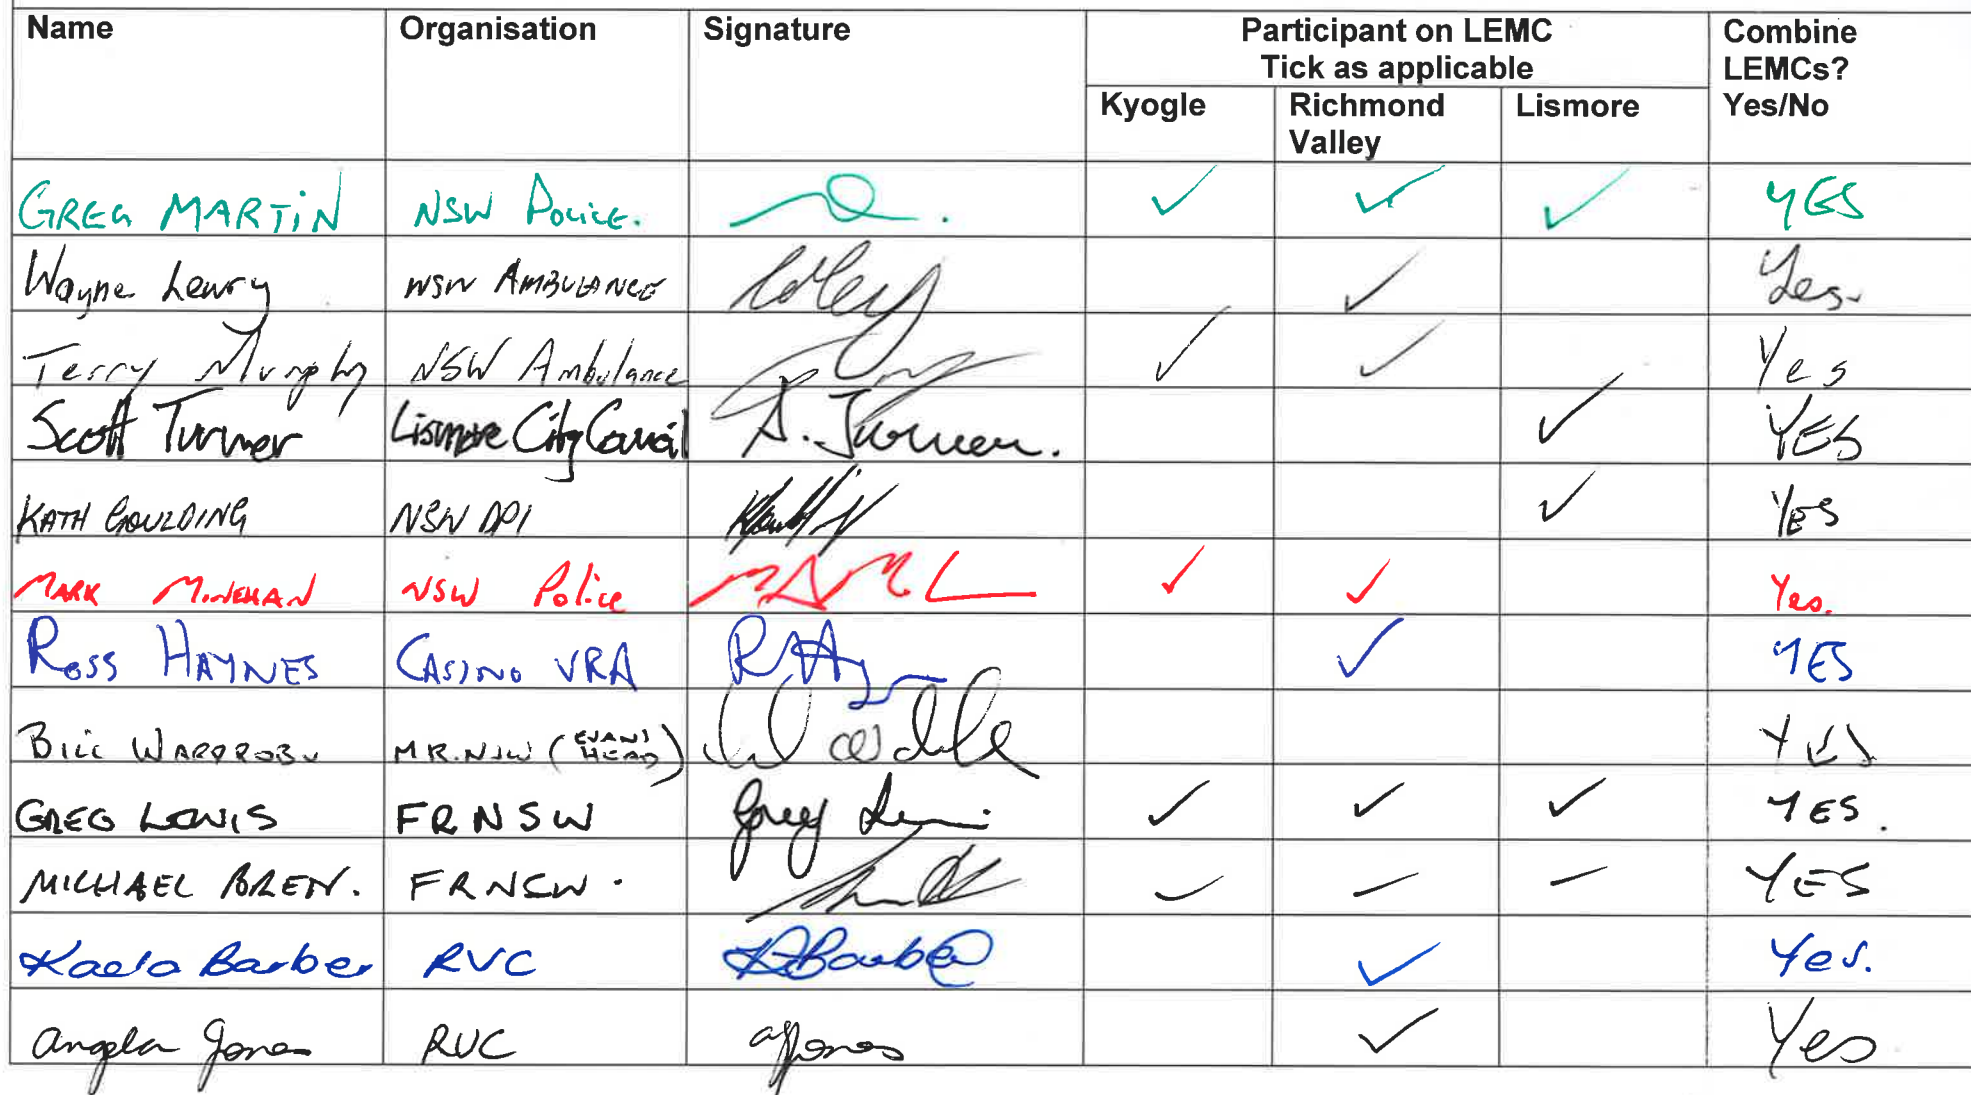 Name Organisation Signature Participant on LEMC Combine
Tick as applicable LEMCs?
Kyogle Richmond Lismore Yes/No
Valley
GREG MARTIN NSW POLICE. ✓ ✓ ✓ YES
Wayne Lewry NSW AMBULANCE ✓ Yes.
Terry Murphy NSW Ambulance ✓ ✓ Yes
Scott Turner Lismore City Council S. Turner. ✓ YES
KATH GOULDING NSW DPI ✓ YES
MARK MINEHAN NSW Police ✓ ✓ Yes.
ROSS HAYNES CASINO VRA ✓ YES
BILL M.R.NSW (EVANS HEAD) YES
GREG LEWIS FRNSW Greg Lewis ✓ ✓ ✓ YES.
MICHAEL FRNSW. ✓ ✓ ✓ YES
Kaela Barber RVC KBarber ✓ Yes.
Angela Jones RVC ajones ✓ Yes